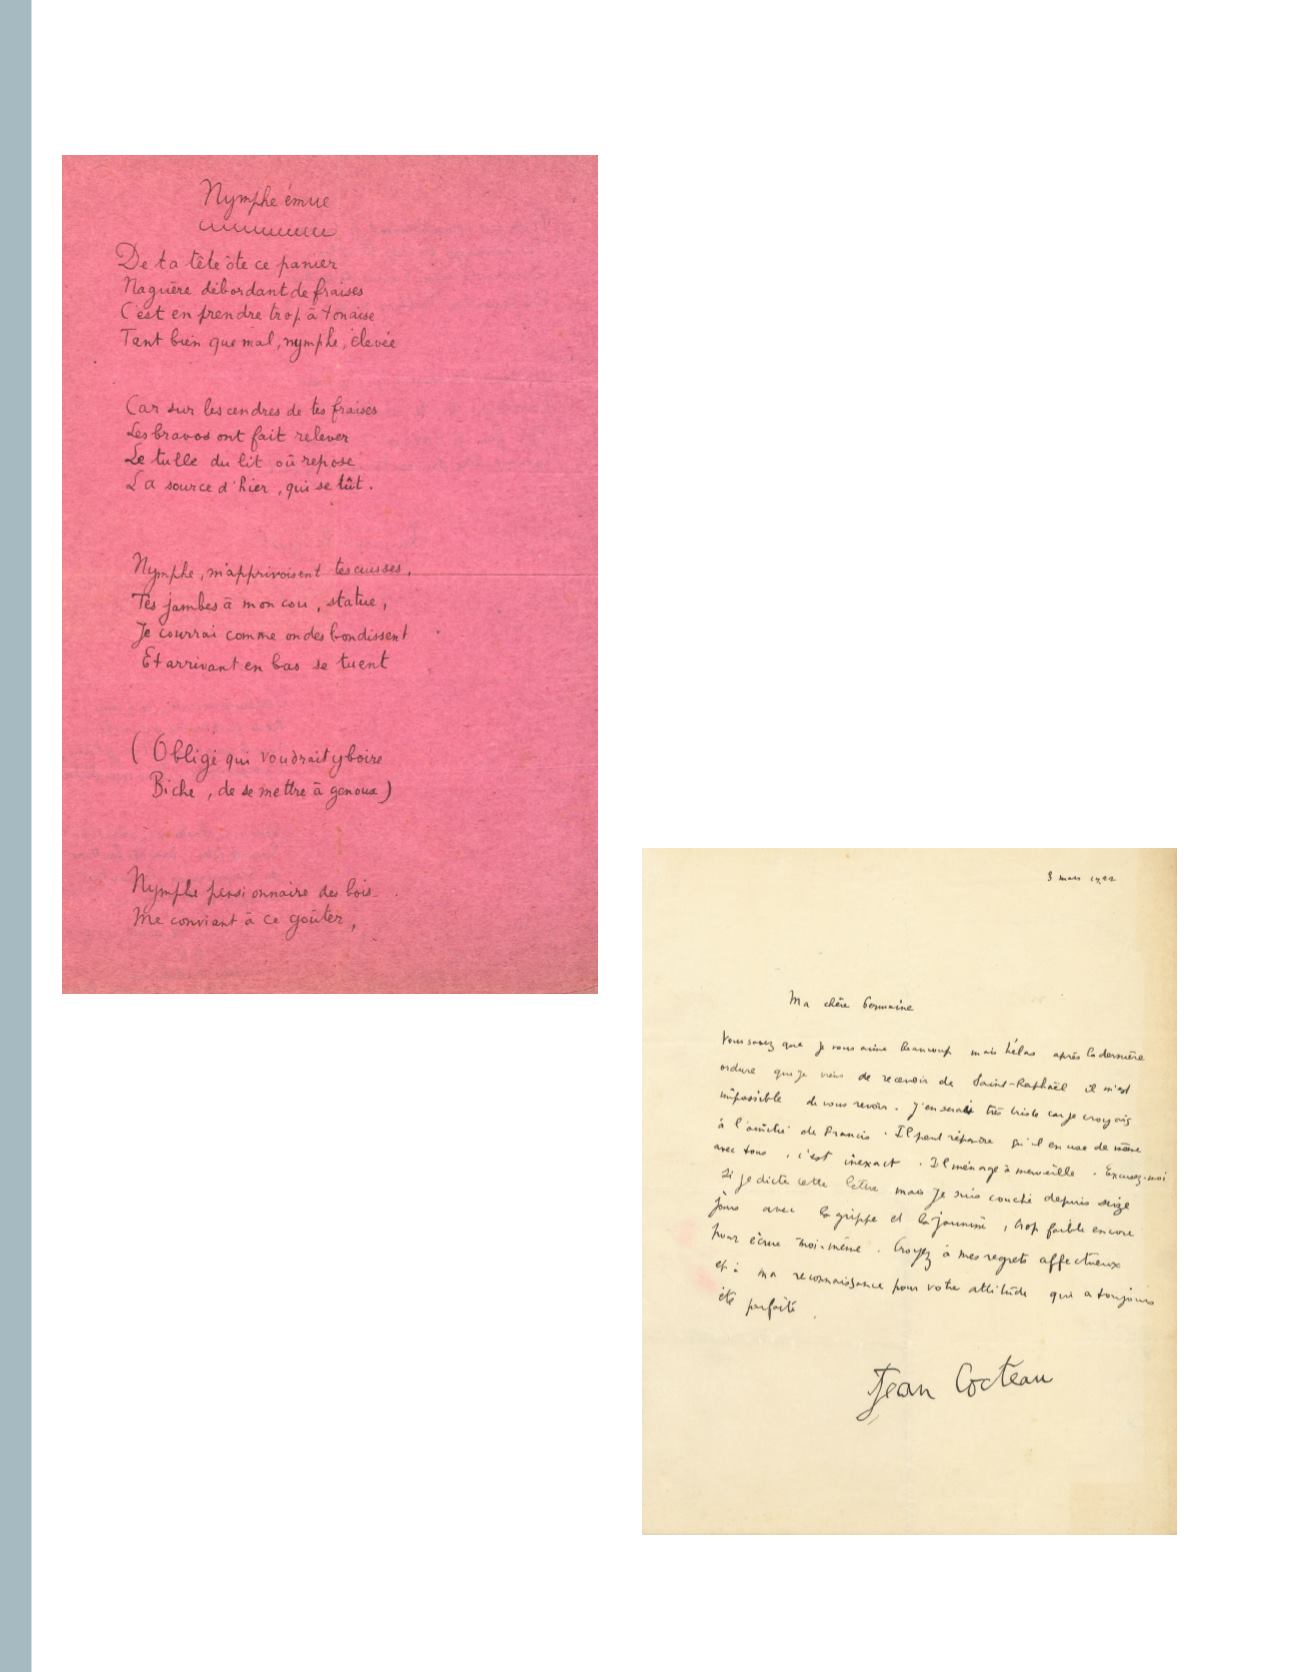 Nymphe émue
De ta tête ôte ce panier
Naguère débordant de fraises
C'est en prendre trop à ton aise
Tant bien que mal, nymphe, élevée
Car sur les cendres de tes fraises
Les bravos ont fait relever
Le tulle du lit où repose
La source d'hier, qui se tût.
Nymphe, m'apprivoisent tes cuisses,
Tes jambes à mon cou, statue,
Je courrai comme ondes bondissent
Et arrivant en bas se tuent
(Obligé qui voudrait y boire
Biche, de se mettre à genoux)
Nymphe pensionnaire des bois
Me conviant à ce goûter,
3 mars 1922
Ma chère Germaine
Vous savez que je vous aime beaucoup mais hélas après la dernière
ordure que je viens de recevoir de Saint-Raphaël il m'est
impossible de vous revoir. J'en serais très triste car je croyais
à l'amitié de Francis. Il peut répondre qu'il en use de même
avec tous, c'est inexact. Il ménage à merveille. Excusez-moi
si je dicte cette lettre mais je suis couché depuis seize
jours avec la grippe et la jaunisse, trop faible encore
pour écrire moi-même. Croyez à mes regrets affectueux
et à ma reconnaissance pour votre attitude qui a toujours
été parfaite.
Jean Cocteau